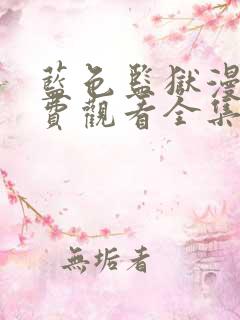 藍色監獄漫
費觀看全集
無垢者